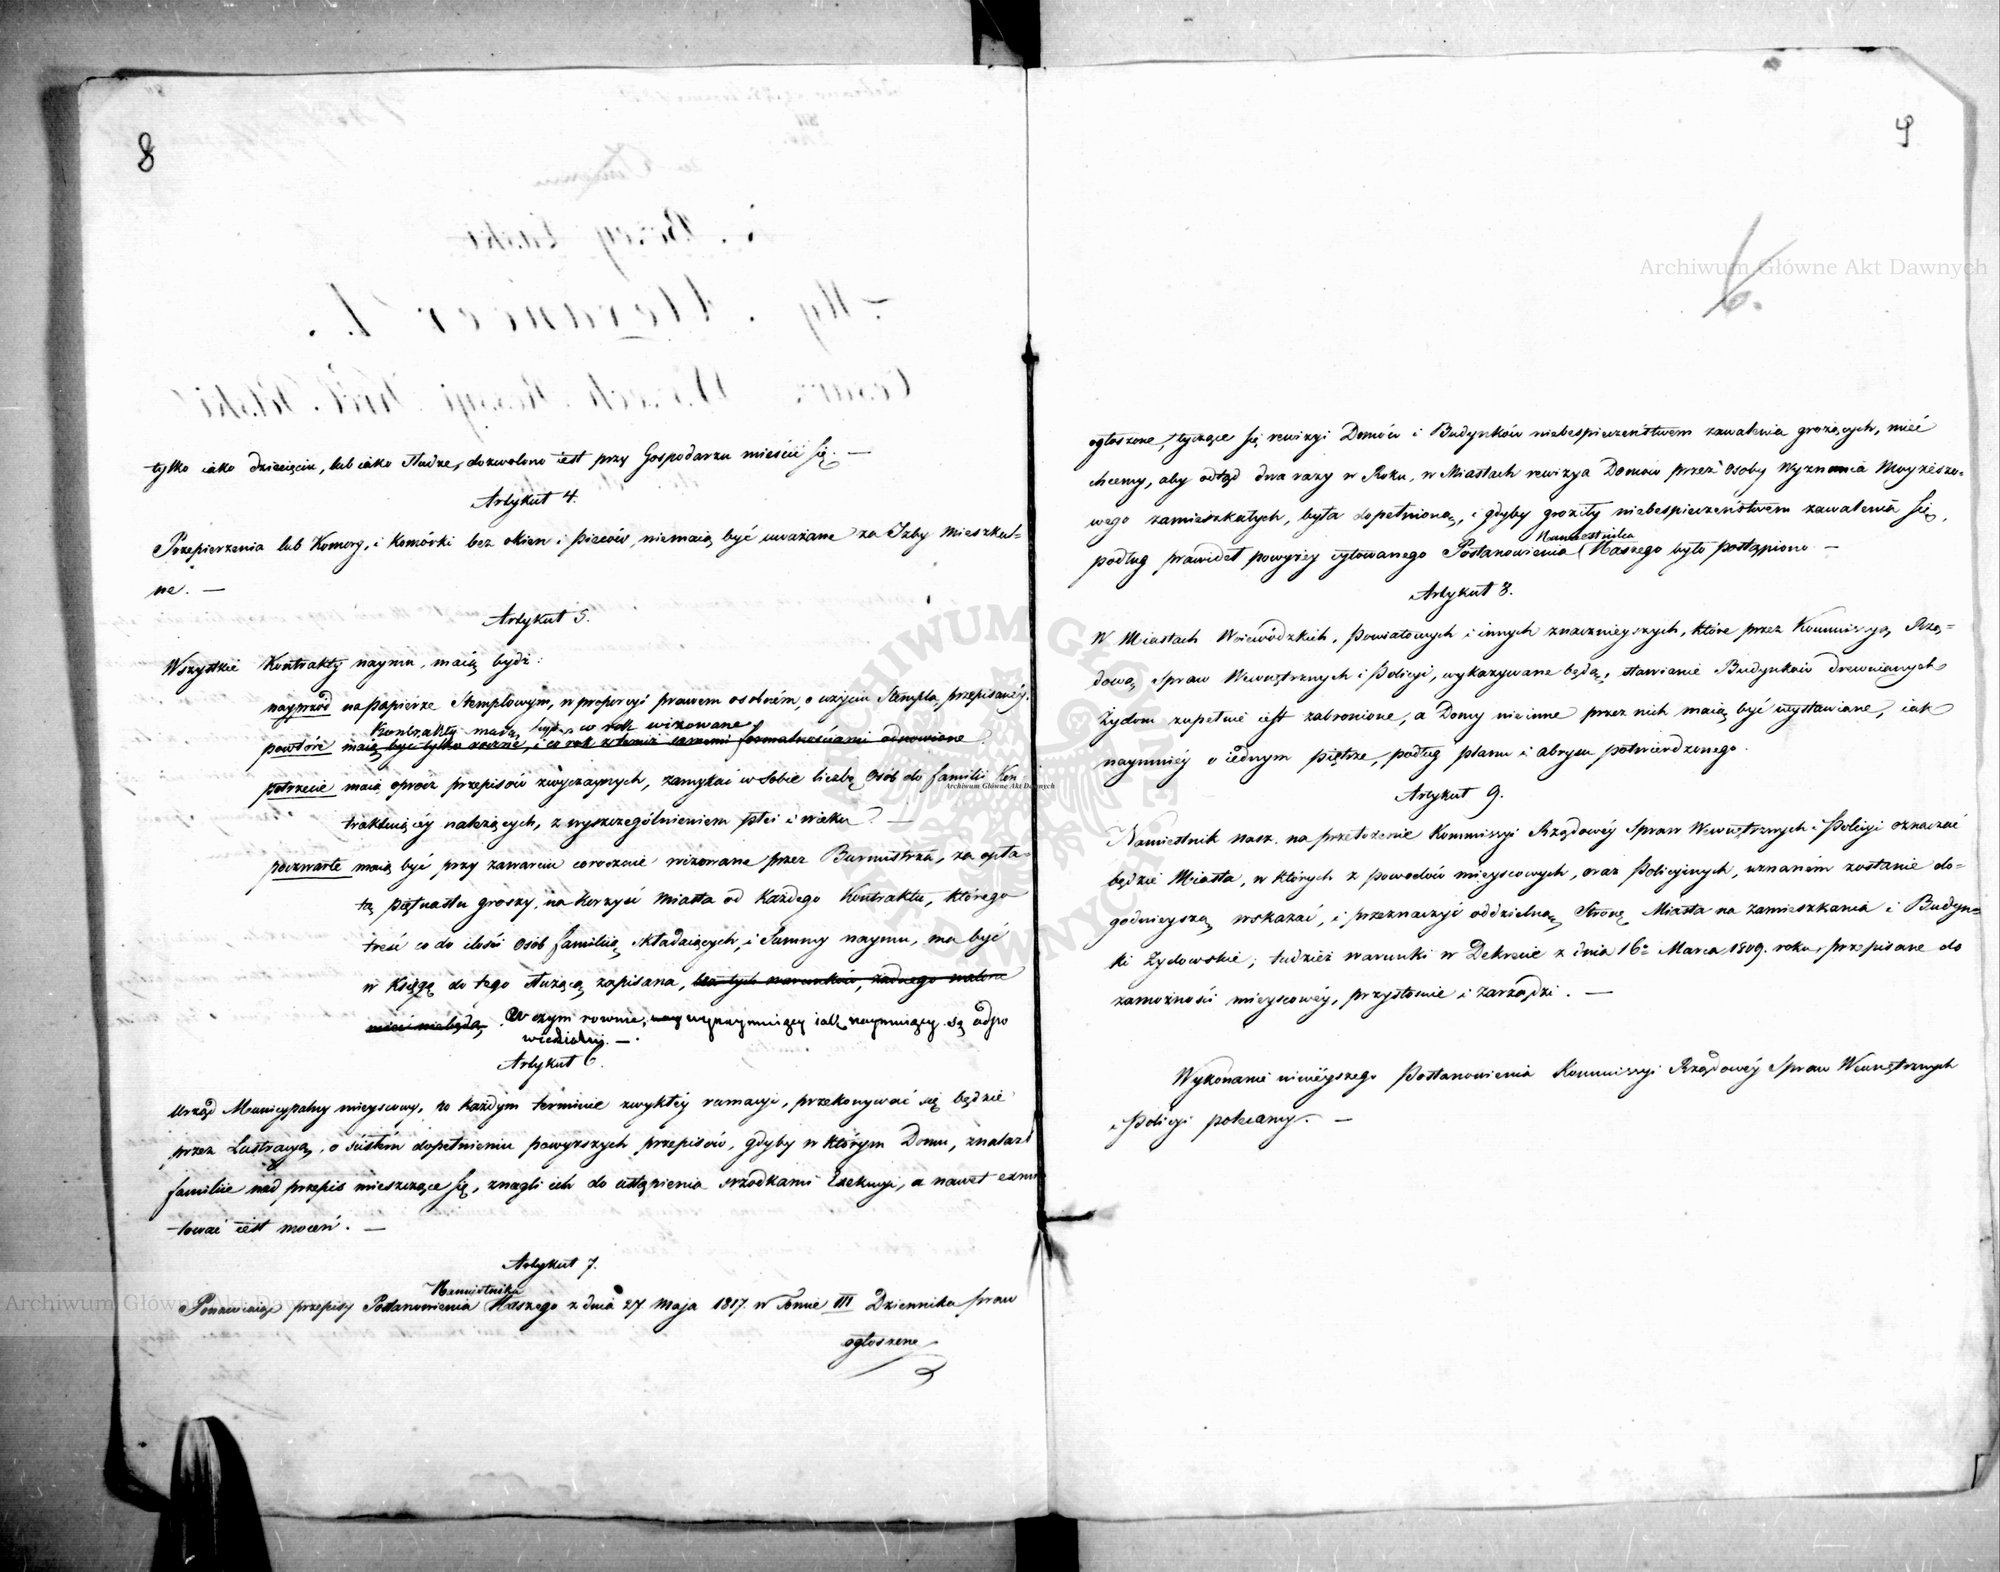 8
tylko iako dziecięciu, lub iako słudze, dozwolono iest przy Gospodarzu mieścić się. —
Artykuł 4.
Przepierzenia lub Komory, i Komórki bez okien i pieców, niemaią być uważane za Izby mieszkal-
ne. —
Artykuł 5.
Wszystkie Kontrakty naymu, maią bydź:
nayprzód na papierze Stemplowym, w proporcyi prawem osobném, o użyciu Stempla, przepisanéy.
Kontrakty maią być co rok wizowane
powtóre maią być tylko roczne, i co rok z temiż samemi formalnościami odnowione
potrzecie maią oprócz przepisów zwyczaynych, zamykać w sobie liczbę osób do familii Kon-
traktuiącéy należących, z wyszczególnieniem płci i wieku. —
poczwarte maią być przy zawarciu corocznie wizowane przez Burmistrza, za opła-
tą piętnastu groszy, na korzyść Miasta od każdego Kontraktu, którego
treść co do ilości osób familią składaiących, i Summy naymu, ma być
w Księgę do tego służącą zapisana, bez tych warunków, żadnego waloru
mieć niebędą. W czym równie, wynaymuiący iak naymuiący są odpo
wiedzialni. —
Artykuł 6.
Urząd Municypalny mieyscowy, po każdym terminie zwykłéy rumacyi, przekonywać się będzie
przez Lustracyą, o ścisłém dopełnieniu powyższych przepisów, gdyby w którym Domu, znalazł
familiie nad przepis mieszczące się, znagli ich do ustąpienia srzodkami Exekucyi, a nawet exmi
tować iest mocen. —
Artykuł 7.
Namiestnika
Ponawiaiąc przepisy Postanowienia Naszego z dnia 27 Maja 1817. w Tomie III Dziennika praw
ogłoszone
9
6.
ogłoszone, tyczące się rewizyi Domów i Budynków niebespieczeństwem zawalenia grożących, mieć
chcemy, aby odtąd dwa razy w Roku, w Miastach rewizya Domów przez osoby Wyznania Moyżeszo-
wego zamieszkałych, była dopełnioną, i gdyby groziły niebespieczeństwem zawalenia się,
Namiestnika
podług prawideł powyżéy cytowanego Postanowienia Naszego było postąpiono. —
Artykuł 8.
W Miastach Woiewódzkich, Powiatowych i innych znacznieyszych, które przez Kommissyą Rzą-
dową Spraw Wewnętrznych i Policyi, wykazywane będą, stawianie Budynków drewnianych
Żydom zupełnie iest zabronione, a Domy nieinne przez nich maią być wystawiane, iak
naymniéy o iednym piętrze, podług planu i abrysu potwierdzonego.
Artykuł 9.
Namiestnik nasz, na przełożenie Kommissyi Rządowéy Spraw Wewnętrznych i Policyi oznaczać
będzie Miasta, w których z powodów mieyscowych, oraz Policyinych, uznaném zostanie do-
godnieyszą wskazać, i przeznaczyć oddzielną Stronę Miasta na zamieszkania i Budyn-
ki Żydowskie; tudzież warunki w Dekrecie z dnia 16o Marca 1809. roku, przepisane do
zamożności mieyscowéy, przystosuie i zarządzi. —
Wykonanie ninieyszego Postanowienia Kommissyi Rządowéy Spraw Wewnętrznych
i Policyi polecamy. —
Archiwum Główne Akt Dawnych
Archiwum Główne Akt Dawnych
Archiwum Główne Akt Dawnych